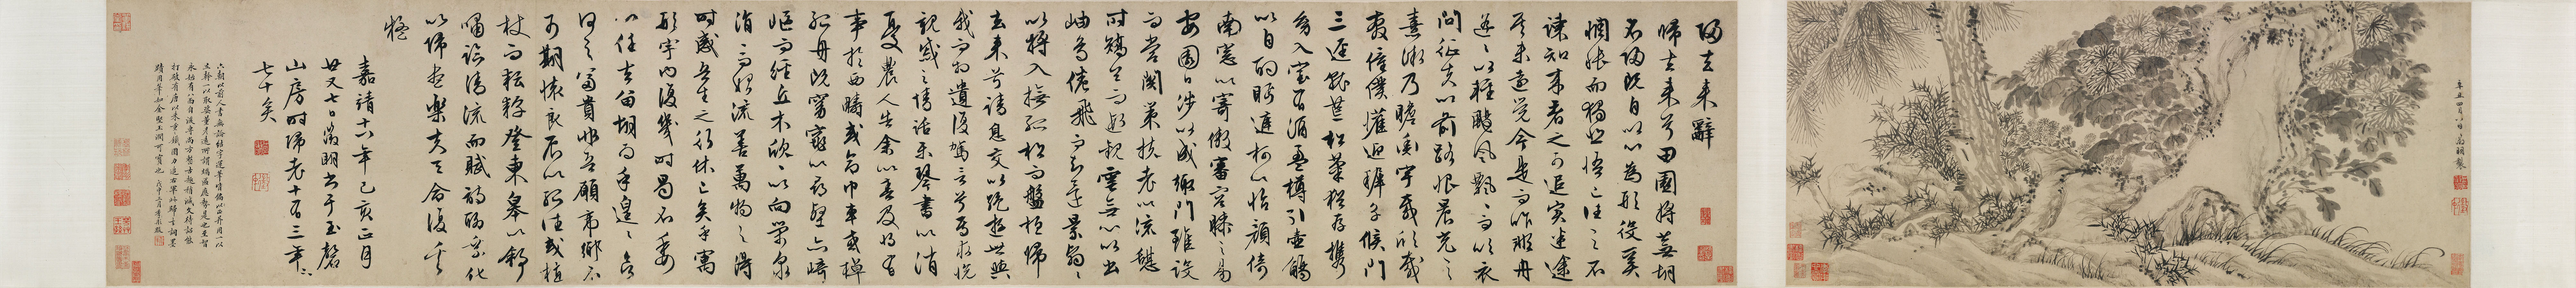 辛丑四月八日
歸去來辭
歸去來兮田園將蕪胡
不歸既自以心為形役奚
惆悵而獨悲悟已往之不
諫知來者之可追實迷途
其未遠覺今是而昨非舟
遙遙以輕颺風飄飄而吹衣
問征夫以前路恨晨光之
熹微乃瞻衡宇載欣載
奔僮僕懽迎稚子候門
三逕就荒松菊猶存攜
幼入室有酒盈樽引壺觴
以自酌眄庭柯以怡顏倚
南窓以寄傲審容膝之易
安園日涉以成趣門雖設
而常關策扶老以流憩
時矯首而遐觀雲無心以出
岫鳥倦飛而知還景翳翳
以將入撫孤松而盤桓歸
去來兮請息交以絕遊世與
我而相遺復駕言兮焉求悅
親戚之情話樂琴書以消
憂農人告余以春及將有
事於西疇或命巾車或棹
孤舟既窈窕以尋壑亦崎
嶇而經丘木欣欣以向榮泉
涓涓而始流善萬物之得
時感吾生之行休已矣乎寓
形宇內復幾時曷不委
心任去留胡為乎遑遑欲
何之富貴非吾願帝鄉不
可期懷良辰以孤往或植
杖而耘耔登東皋以舒
嘯臨清流而賦詩聊乘化
以歸盡樂夫天命復奚
疑
嘉靖十八年己亥正月
廿又七日徵明書于玉磬
山房時歸老十有三年
七十矣
六朝以前人書無論結字運筆